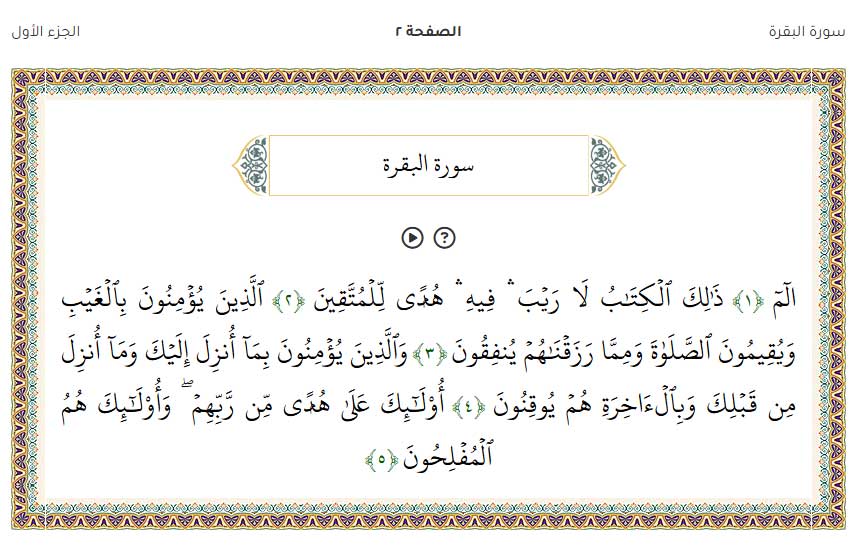 سورة البقرة الصفحة ٢ الجزء الأول
سورة البقرة
الٓمٓ ﴿١﴾ ذَٰلِكَ ٱلْكِتَـٰبُ لَا رَيْبَ ۛ فِيهِ ۛ هُدًى لِّلْمُتَّقِينَ ﴿٢﴾ ٱلَّذِينَ يُؤْمِنُونَ بِٱلْغَيْبِ
وَيُقِيمُونَ ٱلصَّلَوٰةَ وَمِمَّا رَزَقْنَـٰهُمْ يُنفِقُونَ ﴿٣﴾ وَٱلَّذِينَ يُؤْمِنُونَ بِمَآ أُنزِلَ إِلَيْكَ وَمَآ أُنزِلَ
مِن قَبْلِكَ وَبِٱلْـَٔاخِرَةِ هُمْ يُوقِنُونَ ﴿٤﴾ أُو۟لَـٰٓئِكَ عَلَىٰ هُدًى مِّن رَّبِّهِمْ ۖ وَأُو۟لَـٰٓئِكَ هُمُ
ٱلْمُفْلِحُونَ ﴿٥﴾